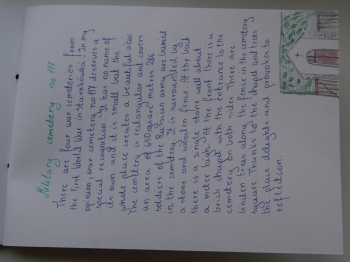 Military cemetery no 117
There are four war cemeteries from
the First World War in Staszkówka. In my
opinion, war cemetery no 117 deserves a
special recognition. It has no name of
its own and it is small but the
whole place creates a beautiful view.
The cemetery is rectangular and covers
an area of 650 square metres. 286
soldiers of the Russian army are buried
in the cemetery. It is surrounded by
a stone and wooden fence. At the back
there is a whole stone wall about
a meter high. At the front there is a
brick chapel with the entrance to the
cemetery on both sides. There are
linden trees along the fence in the cemetery
square. Thanks to the chapel and trees
the place delights and provokes to
reflection.